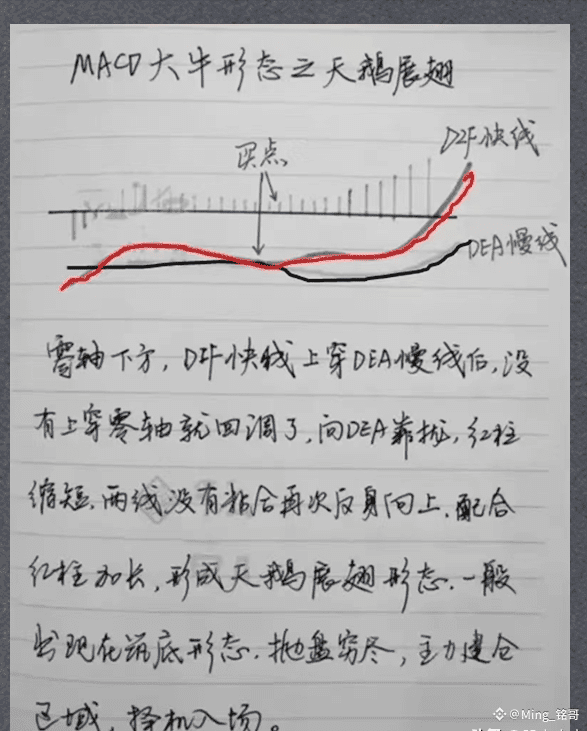 MACD大牛形态之天鹅展翅
买点
DIF快线
DEA慢线
零轴下方，DIF快线上穿DEA慢线后，没
有上穿零轴就回调了，向DEA靠拢，红柱
缩短，两线没有粘合再次反身向上，配合
红柱加长，形成天鹅展翅形态，一般
出现在筑底形态，抛盘穷尽，主力建仓
区域，择机入场。
@Ming_铭哥